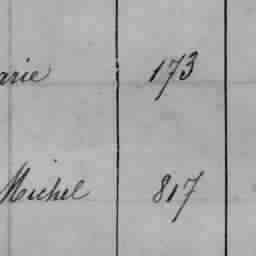 arie 173
Michel 817